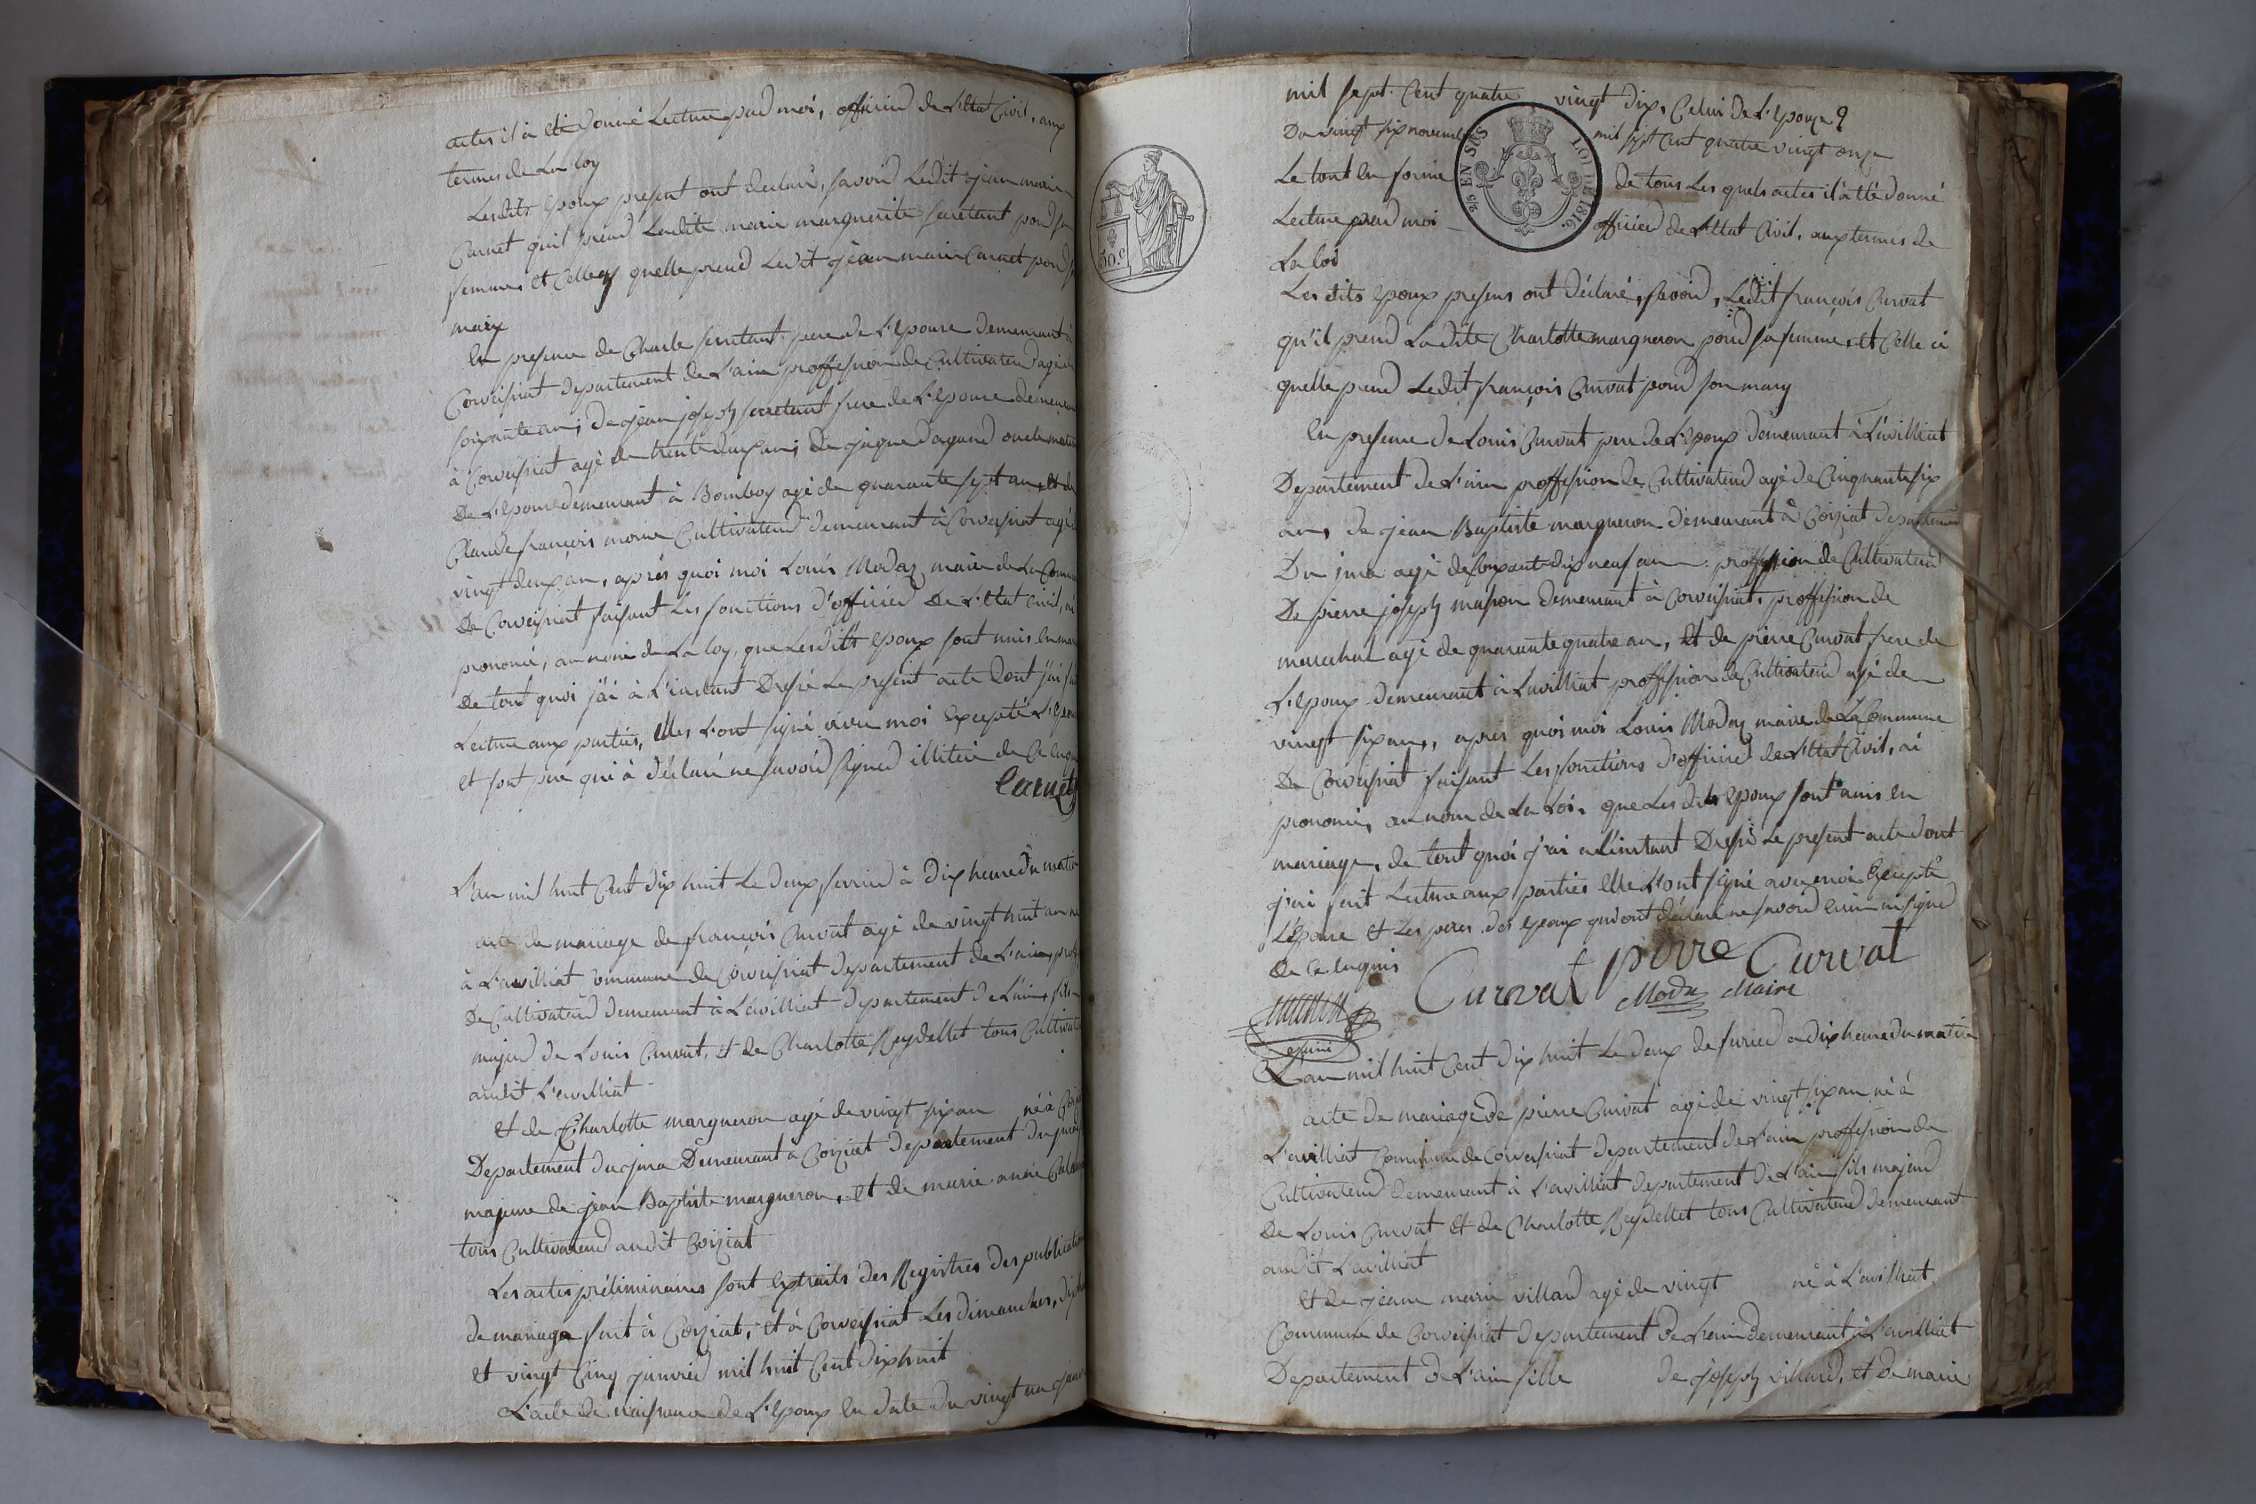 actes il à été donné Lecture par moi, officier de L'Etat Civil, aux
termes de La loy
Lesdits Epoux present ont declaré, savoir Ledit jean marie
Carnet qu'il prend Ladite marie marguerite secretant pour sa
femme, et Celle cy quelle prend Ledit jean marie Carnet pour
mary
En presence de Charle secretant pere de L'Epouse demeurant à
Corveissiat departement de L'ain proffession de Cultivateur agé de
soixante an; de jean joseph secretant frere de L'Epouse demeurant
à Corveissiat agé de trente deux ans; de
De L'Epouse demeurant à Bombois agé de quarante sept an, et de
Claude françois moine Cultivateur demeurant à Corveissiat agé de
vingt deux an, après quoi moi Louis Modas maire de La Commune
De Corveissiat faisant Les fonctions d'officier De L'Etat civil, ai
prononcé, au nom de La loy, que Lesdits Epoux sont unis en
De tout quoi j'ai à L'instant Dressé Le present acte dont j'ai fait
Lecture aux parties, Elles L'ont signé avec moi Excepté L'Epouse
et sont pere qui à déclaré ne savoir signer illiteré de Ce enquis
Carnet
L'an mil huit Cent dix huit Le deux fevrier à dix heure du matin
acte de mariage de françois Curvat agé de vingt huit an né
à L'avilliat Commune de Corveissiat departement de L'ain, proff
De Cultivateur demeurant à L'avilliat departement De L'ain, fils
majeur de Louis Curvat, et de Charlotte Reydellet tous Cultivateur
audit L'avilliat
et de Charlotte margueron agé de vingt six an né à
Departement du jura Demeurant à Coiziat departement du jura
majeure de jean Baptiste margueron, et de marie anne
tous Cultivateur audit Coiziat
Les actes préliminaires sont Extraits des Registres des publications
de mariage fait à Coiziat, et à Corveissiat Les dimanches, dix
et vingt Cinq janvier mil huit Cent dix huit
L'acte de naissance de L'Epoux En date du vingt un
mil sept Cent quatre vingt dix, Celui de L'Epouze
Du vingt six novembre mil sept Cent quatre vingt onze
Le tout en forme de tous Les quels actes il à été donné
Lecture par moi officier de L'Etat Civil, aux termes de
La loi
25 EN SUS LOI DE 1816.
50.c
Les dits Epoux presens ont déclaré, savoir, Ledit françois Curvat
qu'il prend La dite Charlotte margueron pour sa femme, et Celle ci
quelle prend Ledit françois Curvat pour son mary
En presence de Louis Curvat pere de L'Epoux demeurant à L'avilliat
Departement de L'ain proffession de Cultivateur agé de Cinquante six
an, de jean Baptiste margueron demeurant à Coiziat departement
Du jura agé de soixante dix neuf an proffession de Cultivateur
De pierre joseph masson demeurant à Corveissiat, proffession de
marechal agé de quarante quatre an, et de pierre Curvat frere de
L'Epoux demeurant à Lavilliat proffession de Cultivateur agé de
vingt six ans, après quoi moi Louis Modas maire de La Commune
De Corveissiat faisant Les fonctions d'officier de L'Etat Civil, ai
prononcé, au nom de La Loi, que Les dits Epoux sont unis en
mariage, de tout quoi j'ai a L'instant Dressé Le present acte dont
j'ai fait Lecture aux parties Elle L'ont signé avec moi Excepté
L'Epouse et Les peres des Epoux qui ont déclaré ne savoir ecrir ni signé
de Ce enquis
Curvat pierre Curval
Modas Maire
L'an mil huit Cent dix huit Le deux de fevrier a dix heure du matin
acte de mariage de pierre Curvat agé de vingt six an né à
L'avilliat Commune de Corveissiat departement de L'ain proffession de
Cultivateur demeurant à L'avilliat departement De L'ain fils majeur
De Louis Curvat et de Charlotte Reydellet tous Cultivateur demeurant
audit Lavilliat
et de jeane marie villard agé de vingt né à L'avilliat
Commune de Corveissiat departement De L'ain demeurant à L'avilliat
Departement De L'ain fille de joseph villard, et de marie